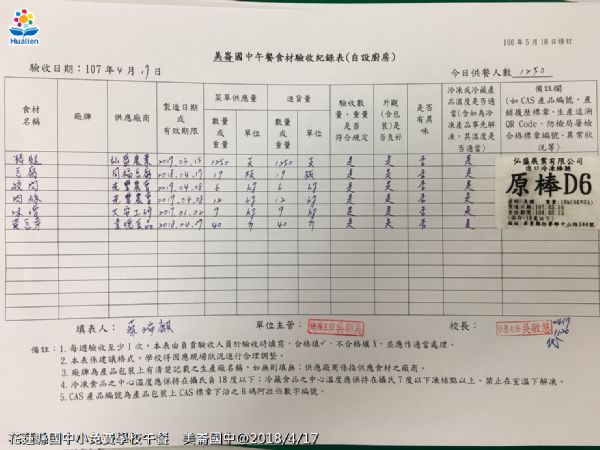 Hualien
106年5月18日修訂
美崙國中午餐食材驗收紀錄表(自設廚房)
驗收日期：107年4月17日
今日供餐人數 1250
食材名稱 廠牌 供應廠商 製造日期或有效期限 菜單供應量 進貨量 驗收數量、重量是否符合規定 外觀(含包裝)是否良好 是否有異味 冷凍或冷藏產品溫度是否適當(含如為冷凍產品事先解凍，其溫度是否適當) 備註欄(如 CAS 產品編號、產銷履歷標章、生產追溯 QR Code、防檢局屠檢合格標章編號、異常狀況等)
數量或重量 單位 數量或重量 單位
棒腿 弘盛農業 2019.03.15 1250 支 1250 支 是 是 否 是
豆腐 2018.04.19 19 板 19 板 是 是 否 是
絞肉 2019.04.08 6 kg 6 kg 是 是 否 是
肉絲 2019.04.08 12 kg 12 kg 是 是 否 是
味噌 2019.01.02 9 kg 9 kg 是 是 否 是
2018.04.19 40 40 是 是 否 是
弘盛農業有限公司
進口冷凍棒腿
原棒D6
填表人： 單位主管： 校長：
備註：1.每週驗收至少1次，本表由負責驗收人員於驗收時填寫，合格填ˇ，不合格填X，並應作適當處理。
2.本表係建議格式，學校得因應現場狀況進行合理調整。
3.廠牌為產品包裝上有清楚記載之生產廠名稱，如無則填無；供應廠商係指供應食材之廠商。
4.冷凍食品之中心溫度應保持在攝氏負18度以下；冷藏食品之中心溫度應保持在攝氏7度以下凍結點以上，禁止在室溫下解凍。
5.CAS產品編號為產品包裝上CAS標章下沿之6碼阿拉伯數字編號。
花蓮縣國中小免費學校午餐 美崙國中@2018/4/17